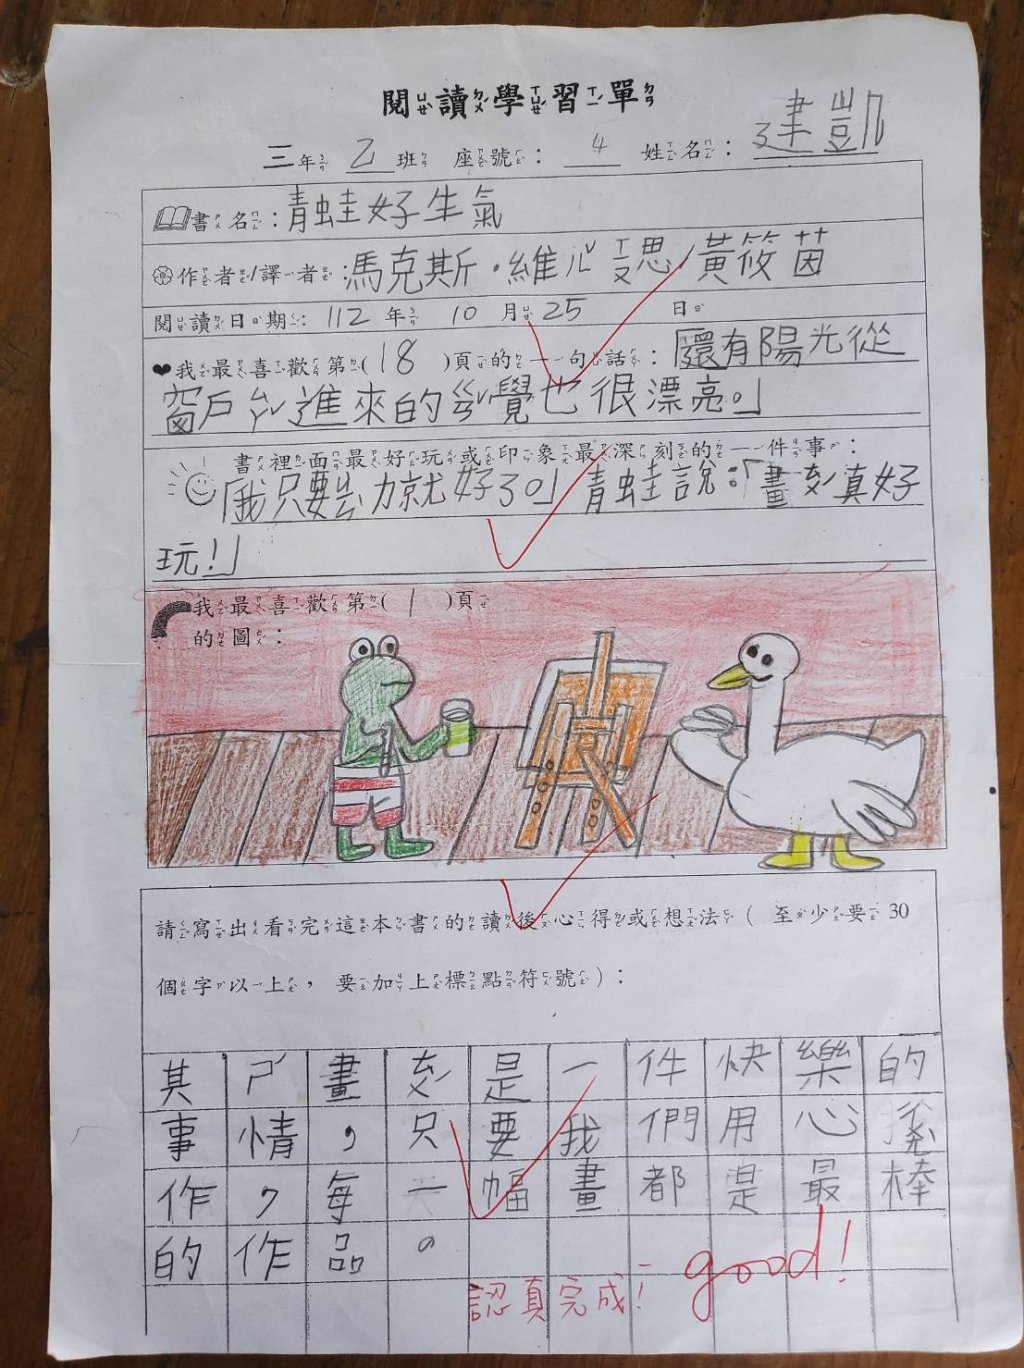 閱讀學習單
三年乙班 座號：4 姓名：建凱
書名：青蛙好生氣
作者/譯者：馬克斯．維ㄦˇㄒㄡ思/黃筱茵
閱讀日期：112年10月25日
❤我最喜歡第(18)頁的一句話：還有陽光從
窗戶ㄓㄚˊ進來的感覺也很漂亮。」
書裡面最好玩或印象最深刻的一件事：
「我只要ㄔㄨ力就好了。」青蛙說：「畫ㄊㄨˊ真好
玩！」
我最喜歡第(1)頁
的圖：
請寫出看完這本書的讀後心得或想法(至少要30
個字以上，要加上標點符號)：
其ㄕˊ畫ㄊㄨˊ是一件快樂的
事情，只要我們用心
作，每一幅畫都是最棒
的作品。
認真完成！ good!